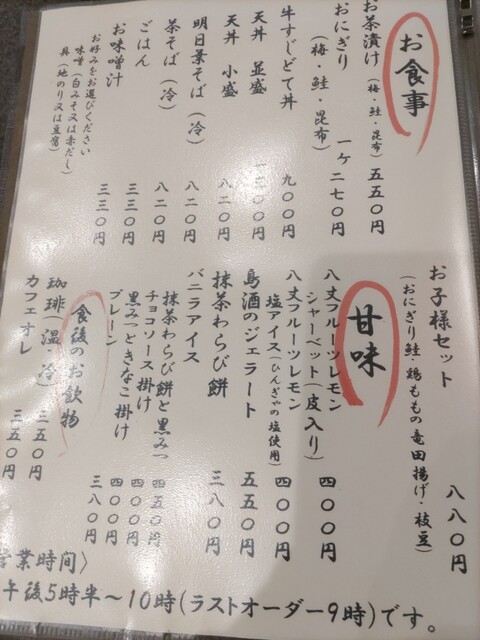 お食事
お茶漬け(梅・鮭・昆布) 五五〇円
おにぎり
(梅・鮭・昆布) 一ケ 二七〇円
牛すじどて丼 九〇〇円
天丼 並盛
天丼 小盛 八二〇円
明日葉そば(冷) 八二〇円
茶そば(冷) 八二〇円
ごはん 三三〇円
お味噌汁 三三〇円
お好みをお選びください
味噌(白みそ又は赤だし)
具(地のり又は豆腐)
お子様セット
(おにぎり鮭・鶏ももの竜田揚げ・枝豆) 八八〇円
甘味
八丈フルーツレモン
シャーベット(皮入り) 四〇〇円
八丈フルーツレモン
塩アイス(ひんぎゃの塩使用) 四〇〇円
島酒のジェラート 五五〇円
抹茶わらび餅 三八〇円
バニラアイス
抹茶わらび餅と黒みつ 四五〇円
チョコソース掛け 四〇〇円
黒みつときなこ掛け 四〇〇円
プレーン 三八〇円
食後のお飲物
珈琲(温・冷) 三五〇円
カフェオレ 三五〇円
営業時間〉
午後5時半〜10時(ラストオーダー9時)です。